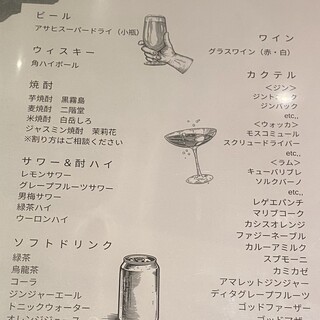 ビール
アサヒスーパードライ（小瓶）
ウィスキー
角ハイボール
焼酎
芋焼酎　黒霧島
麦焼酎　二階堂
米焼酎　白岳しろ
ジャスミン焼酎　茉莉花
※割り方はご相談ください
サワー＆酎ハイ
レモンサワー
グレープフルーツサワー
男梅サワー
緑茶ハイ
ウーロンハイ
ソフトドリンク
緑茶
烏龍茶
コーラ
ジンジャーエール
トニックウォーター
オレンジジュース
ワイン
グラスワイン（赤・白）
カクテル
＜ジン＞
ジントニック
ジンバック
etc,,
＜ウォッカ＞
モスコミュール
スクリュードライバー
etc,,
＜ラム＞
キューバリブレ
ソルクバーノ
etc,,
レゲエパンチ
マリブコーク
カシスオレンジ
ファジーネーブル
カルーアミルク
スプモーニ
カミカゼ
アマレットジンジャー
ディタグレープフルーツ
ゴッドファーザー
ゴッドマザー